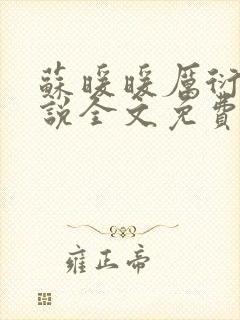 蘇暖暖厲衍
說全文免費
雍正帝